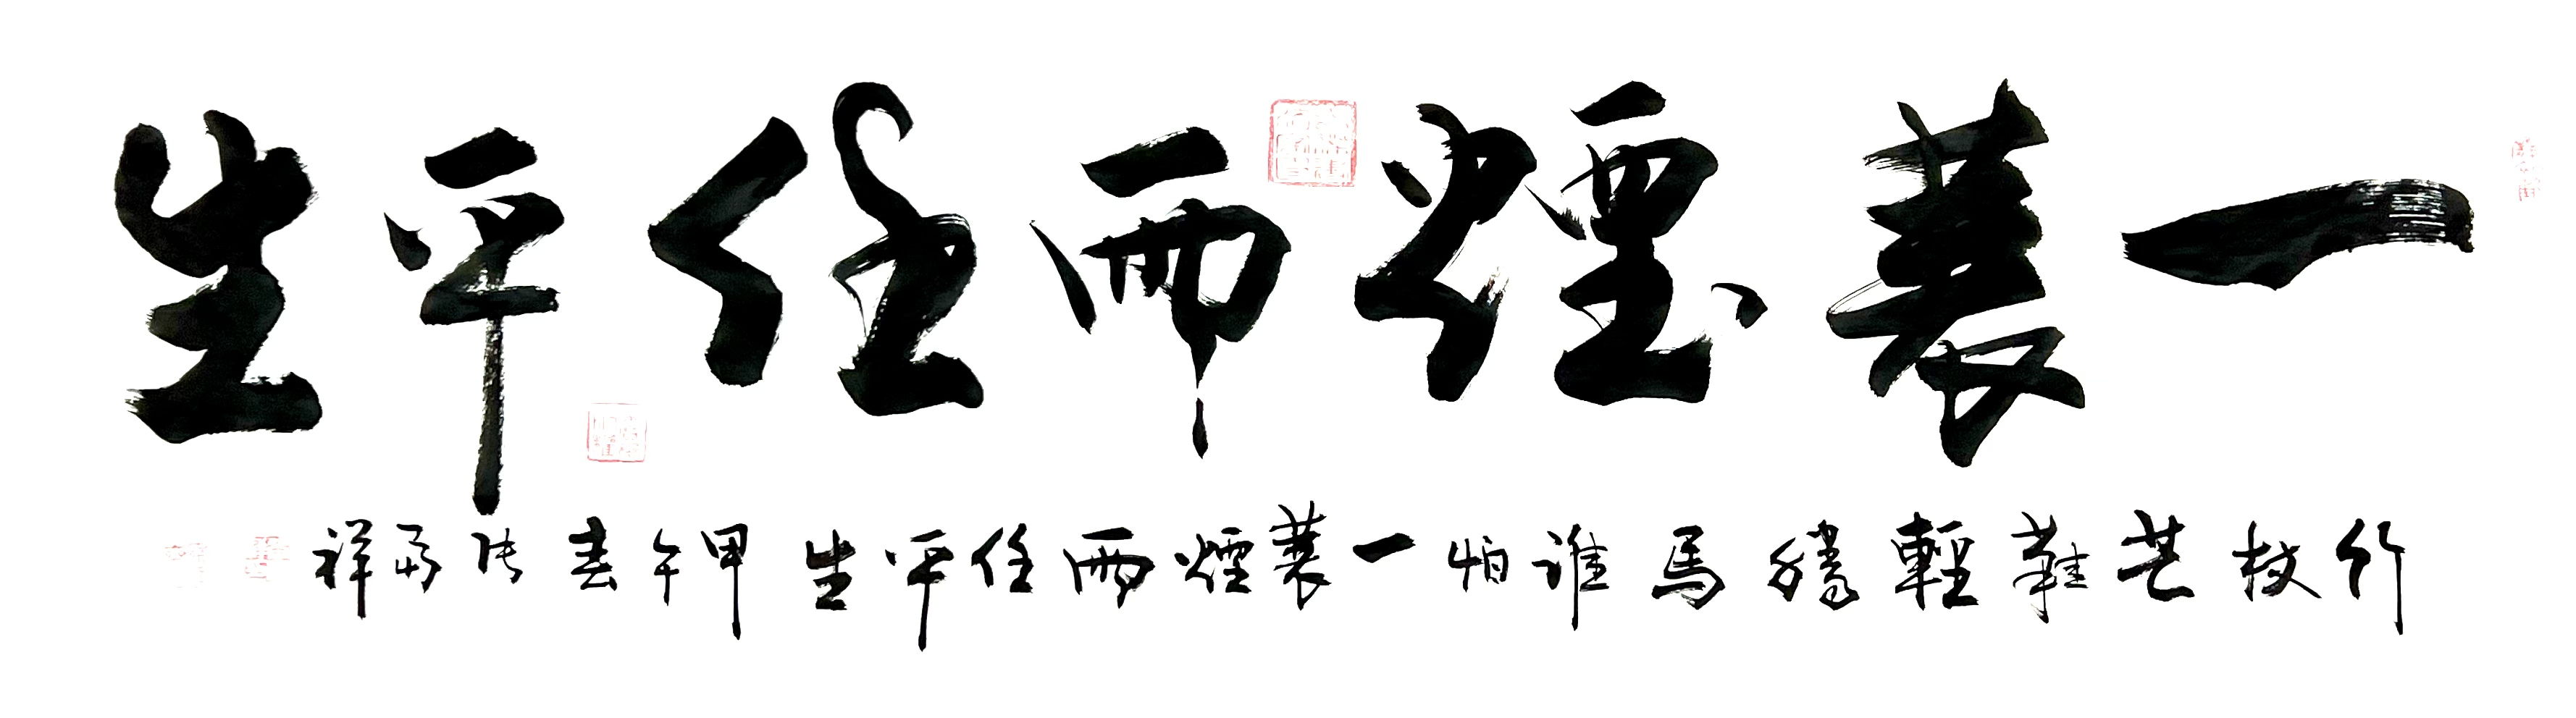 一蓑煙雨任平生
竹杖芒鞋輕勝馬谁怕一蓑煙雨任平生甲午春张祥